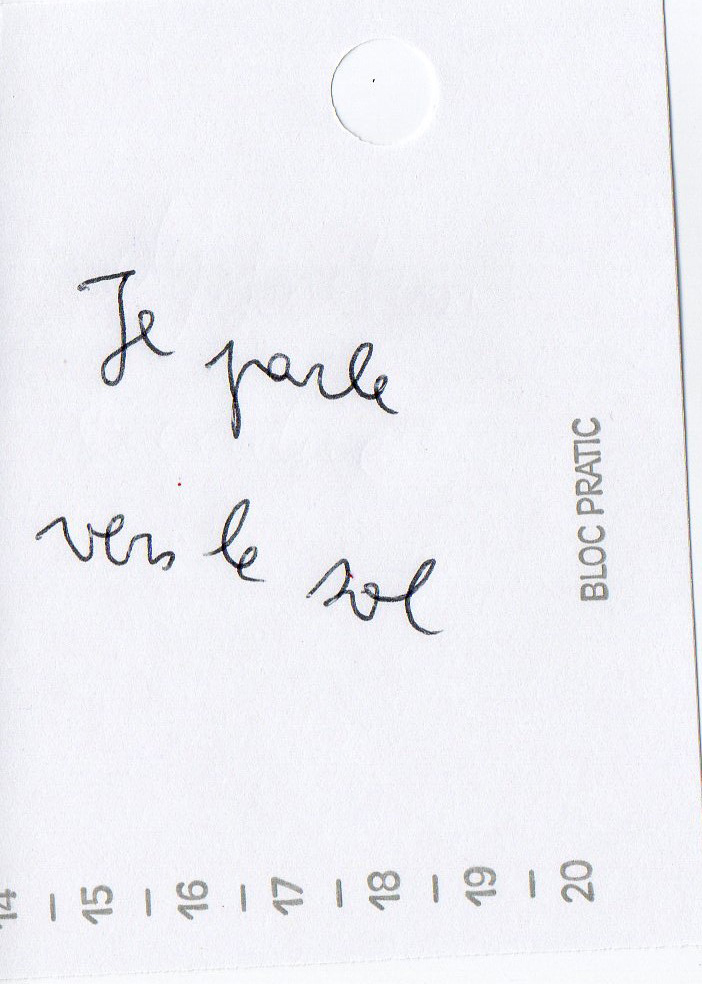 Je parle
vers le sol
BLOC PRATIC
14 – 15 – 16 – 17 – 18 – 19 – 20